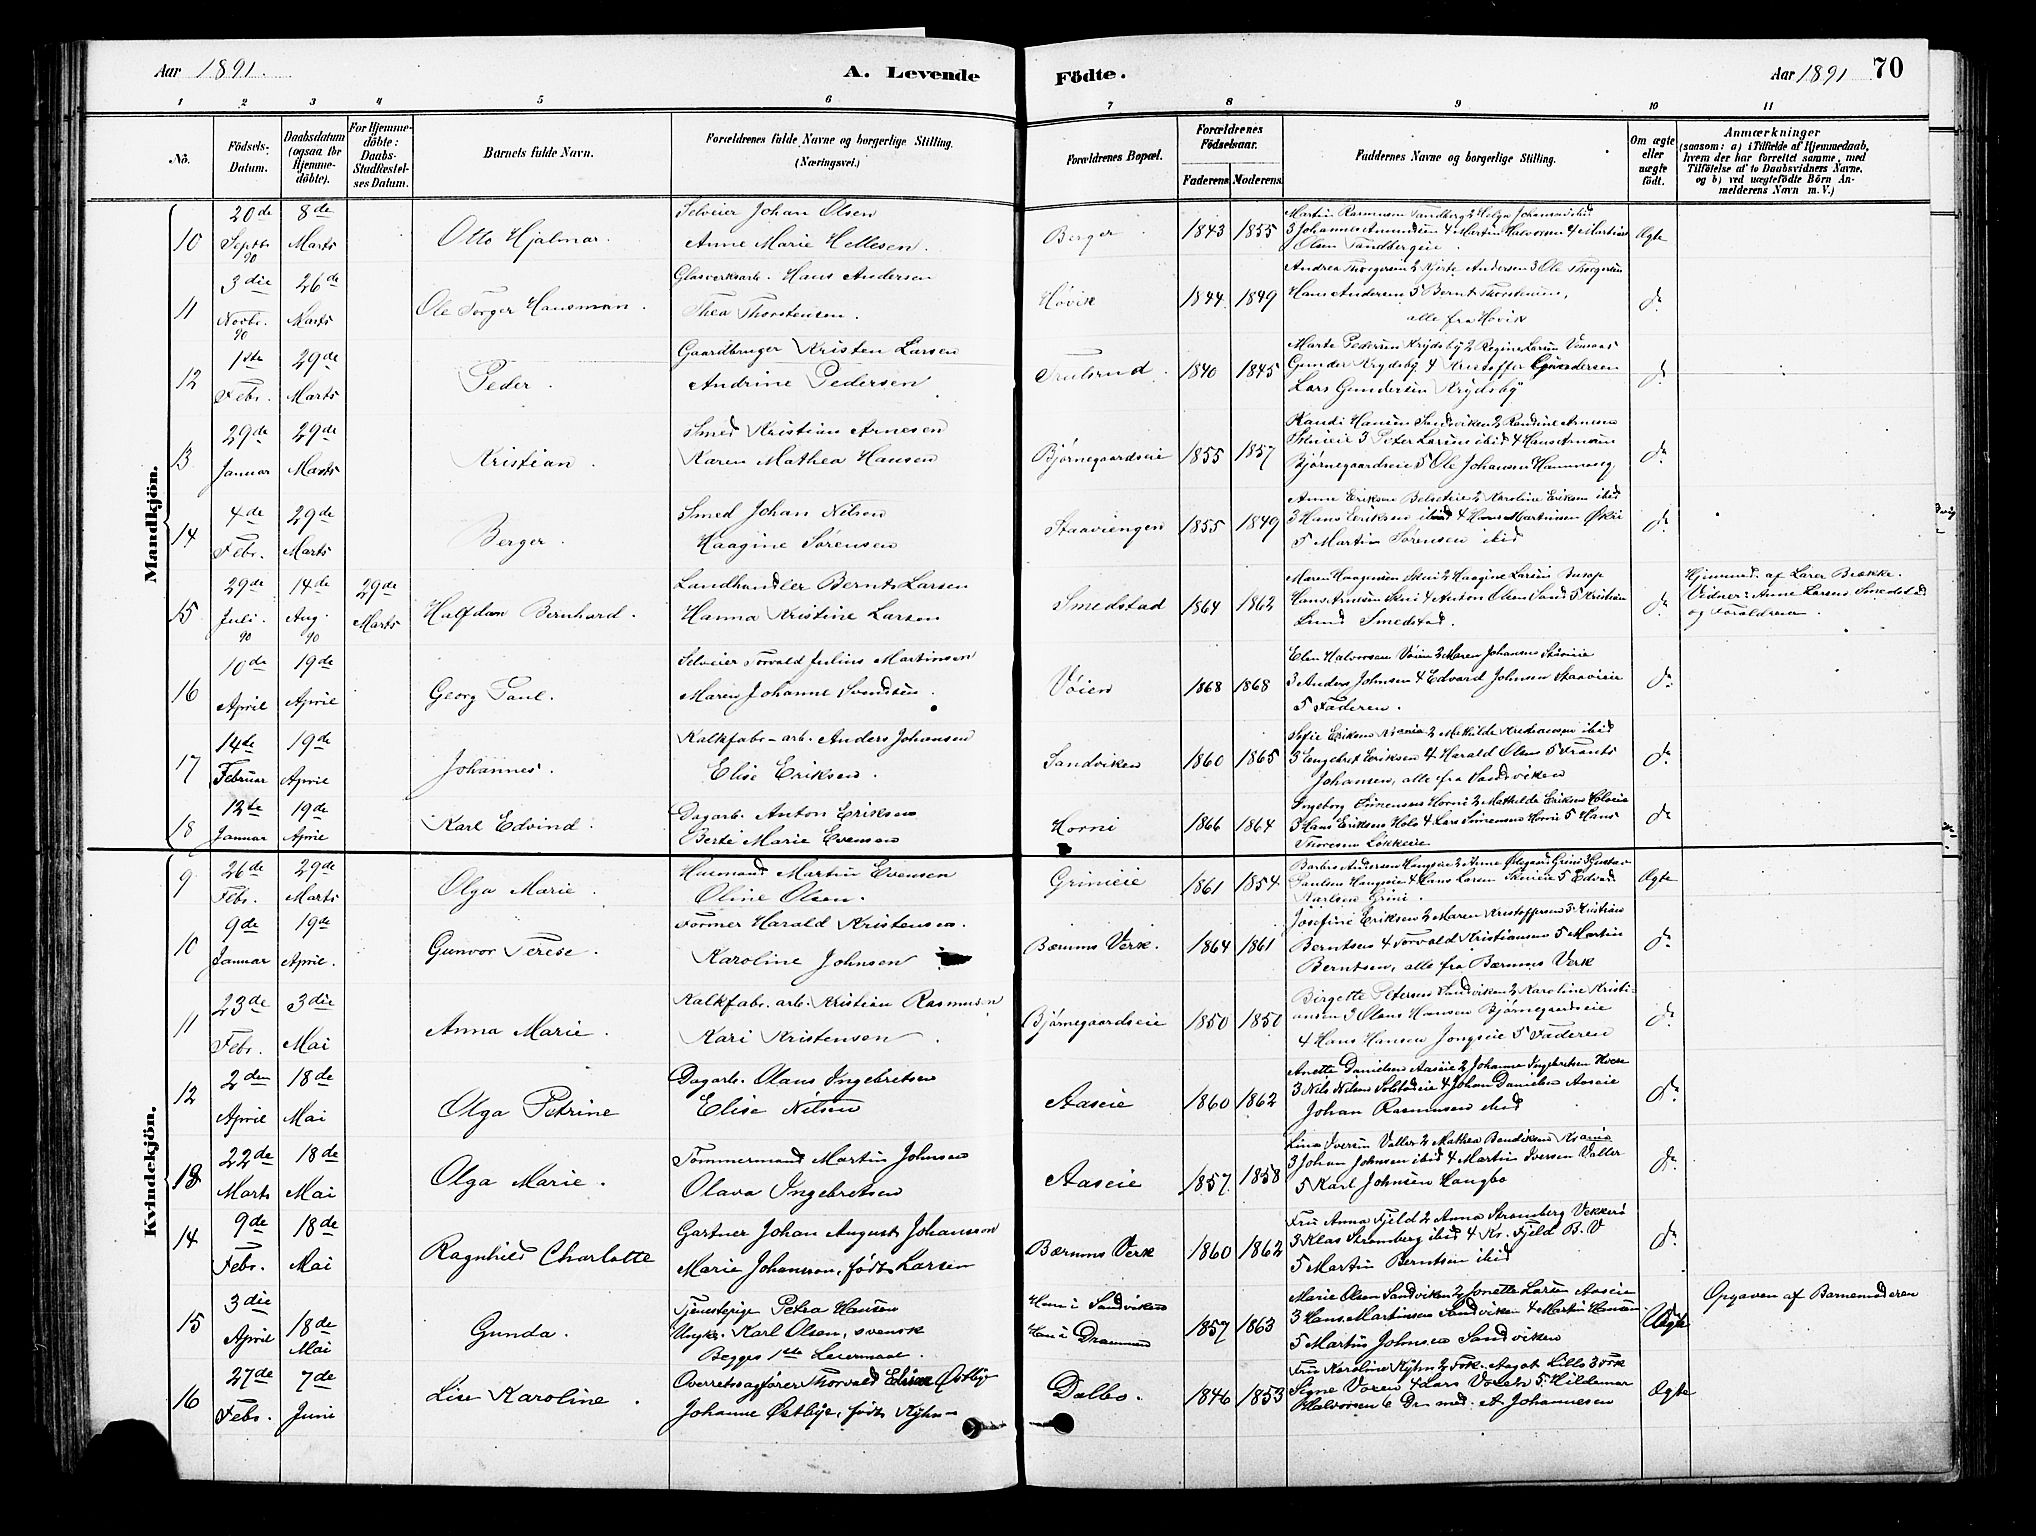 Aar 1891.
A. Levende Födte.
Aar 1891
70
1 2 3 4 5 6 7 8 9 10 11
No.
Födsels-Datum.
Daabsdatum (ogsaa for Hjemmedöbte).
For Hjemmedöbte: Daabs-Stadfæstelses Datum.
Barnets fulde Navn.
Forældrenes fulde Navne og borgerlige Stilling. (Næringsvei.)
Forældrenes Bopæl.
Forældrenes Födselsaar.
Faderens. Moderens.
Faddernes Navne og borgerlige Stilling.
Om ægte eller uægte födt.
Anmærkninger
(saasom: a) i Tilfælde af Hjemmedaab, hvem der har forrettet samme, med Tilföielse af to Daabsvidners Navne, og b) ved uægtefödte Börn Anmelderens Navn m. V.)
Mandkjön.
10 20de Septbr. 90 8de Marts Otto Hjalmar. Selveier Johan Olsen
Anne Marie Hellesen. Berger 1843 1855 Martin Rasmussen Tandberg 2 Helga Johansen ibid
3 Johannes Amundsen 4 Martin Halvorsen 4 Martius
Olsen Tandbergeie. Ægte
11 3die Novbr. 90 26de Marts Ole Torger Hansman. Glasverksarb. Hans Andersen
Thea Thorstensen. Høvik 1844 1849 Andrea Thorgersen 2 Andersen 3 Ole Thorgersen
Hans Andersen 5 Bernt Thorstensen,
alle fra Høvik do
12 1ste Febr. 29de Marts Peder. Gaardbruger Kristen Larsen
Andrine Pedersen 1840 1845 Marte Pedersen Krydsby 2 Regine Larsen
Gunder Krydsby 4 Kristoffer Gundersen
Lars Gundersen Krydsby do
13 29de Januar 29de Marts Kristian. Smed Kristian Arnesen
Karen Mathea Hansen Bjørnegaardseie 1855 1857 Randi Hansen Sandviken 2 Randine Arnesen
3 Peter Larsen ibid 4 Hans Arnesen
Bjørnegaardseie 5 Ole Johansen do
14 4de Febr. 29de Marts Berger. Smed Johan Nilsen
Haagine Sørensen Staaviengen 1855 1849 Anne Eriksen Belseteie 2 Karoline Eriksen ibid
3 Hans Eriksen ibid 4 Hans Martinsen Økri
5 Martin Sørensen ibid do
15 29de Juli. 90 14de Aug. 90 29de Marts Halfdan Bernhard. Landhandler Bernt Larsen
Hanna Kristine Larsen Smedstad 1864 1862 Maren Haagensen Skui 2 Haagine Larsen
Hans Arnesen Skui 4 Anton Olsen Sand 5 Kristian
Lund Smedstad. do Hjemmed. af Lærer Brække.
Vidner: Anne Larsen Smedstad
og Forældrene.
16 10de April 19de April Georg Paul. Selveier Torvald Julius Martinsen
Maren Johanne Svendsen. Vøien 1868 1868 Elen Halvorsen Vøien 2 Maren Johansen
3 Anders Johnsen 4 Edvard Johnsen Staavieie
5 Faderen. do
17 14de Februar 19de April Johannes. Kalkfabr-arb. Anders Johansen
Elise Eriksen. Sandviken 1860 1865 Sofie Eriksen 2 Mathilde Kristiansen ibid
3 Engebret Eriksen 4 Harald Olsen 5 Frants
Johansen, alle fra Sandviken do
18 12te Januar 19de April Karl Edvind. Dagarb. Anton Eriksen
Berte Marie Evensen Horni 1866 1864 Ingeborg Simensen Horni 2 Mathilde Eriksen
3 Hans Eriksen Holo 4 Lars Simensen Horni 5 Hans
Thoresen Løkkeie do
Kvindekjön.
9 26de Febr. 29de Marts Olga Marie. Husmand Martin Evensen
Oline Olsen. Grinieie 1861 1854 Barbro Andersen Haugseie 2 Anne Grini 3 Gustav
Paulsen Haugseie 4 Hans Larsen 5 Edvard
Karlsen Grini. Ægte
10 9de Januar 19de April. Gunvor Terese. Former Harald Kristensen.
Karoline Johnsen Bærums Verk. 1864 1861 Josefine Eriksen 2 Maren Kristoffersen 3 Kristian
Berntsen 4 Torvald Kristiansen 5 Martin
Berntsen, alle fra Bærums Verk do
11 23de Febr. 3die Mai Anna Marie. Kalkfabr. arb. Kristian Rasmusen
Kari Kristensen Bjørnegaardseie 1850 1850 Birgitte Petersen Sandviken 2 Karoline Kristi-
ansen 3 Olaus Hansen Bjørnegaardseie
4 Hans Hansen Jongseie 5 Faderen do
12 2den April 18de Mai Olga Petrine Dagarb. Olaus Ingebretsen
Elise Nilsen Aaseie 1860 1862 Anette Danielsen Aaseie 2 Johanne Ingebretsen
3 Nils Nilsen 4 Johan Danielsen Aaseie
Johan Rasmussen ibid do
13 22de Marts 18de Mai Olga Marie. Tømmermand Martin Johnsen
Olava Ingebretsen Aaseie 1857 1858 Lina Iversen Valler 2 Mathea Bendiksen
3 Johan Johnsen ibid 4 Martin Iversen Valler
5 Karl Johnsen Haugbo do
14 9de Febr. 18de Mai Ragnhild Charlotte Gartner Johan August Johansson
Marie Johansson, født Larsen Bærums Verk 1860 1862 Fru Anna Fjeld 2 Anna Strømberg Vekkerø
3 Klas Strømberg ibid 4 Kr. Fjeld B.V
5 Martin Berntsen ibid do
15 3die April 18de Mai Gunda. Tjenestepige Petra Hansen
Ungkr. Karl Olsen, svensk
Begges 1ste Leiermaal. Hun i Sandviken
Han i Drammen 1857 1863 Marie Olsen Sandviken 2 Jonette Larsen Aaseie
3 Hans Martinsen Sandviken 4 Martin Hansen
5 Martin Johnsen Sandviken Uægte Opgaven af Barnemoderen
16 27de Febr. 7de Juni Lise Karoline. Overretssagfører Thorvald Østbye
Johanne Østbye, født Kyhn Dalbo. 1846 1853 Fru Karoline Kyhn 2 Frk. Aagot Lills 3 Frk
Signe Voren 4 Lars 5 Hildemar
Halvorsen 6 Dr. med. A Johannesen Ægte